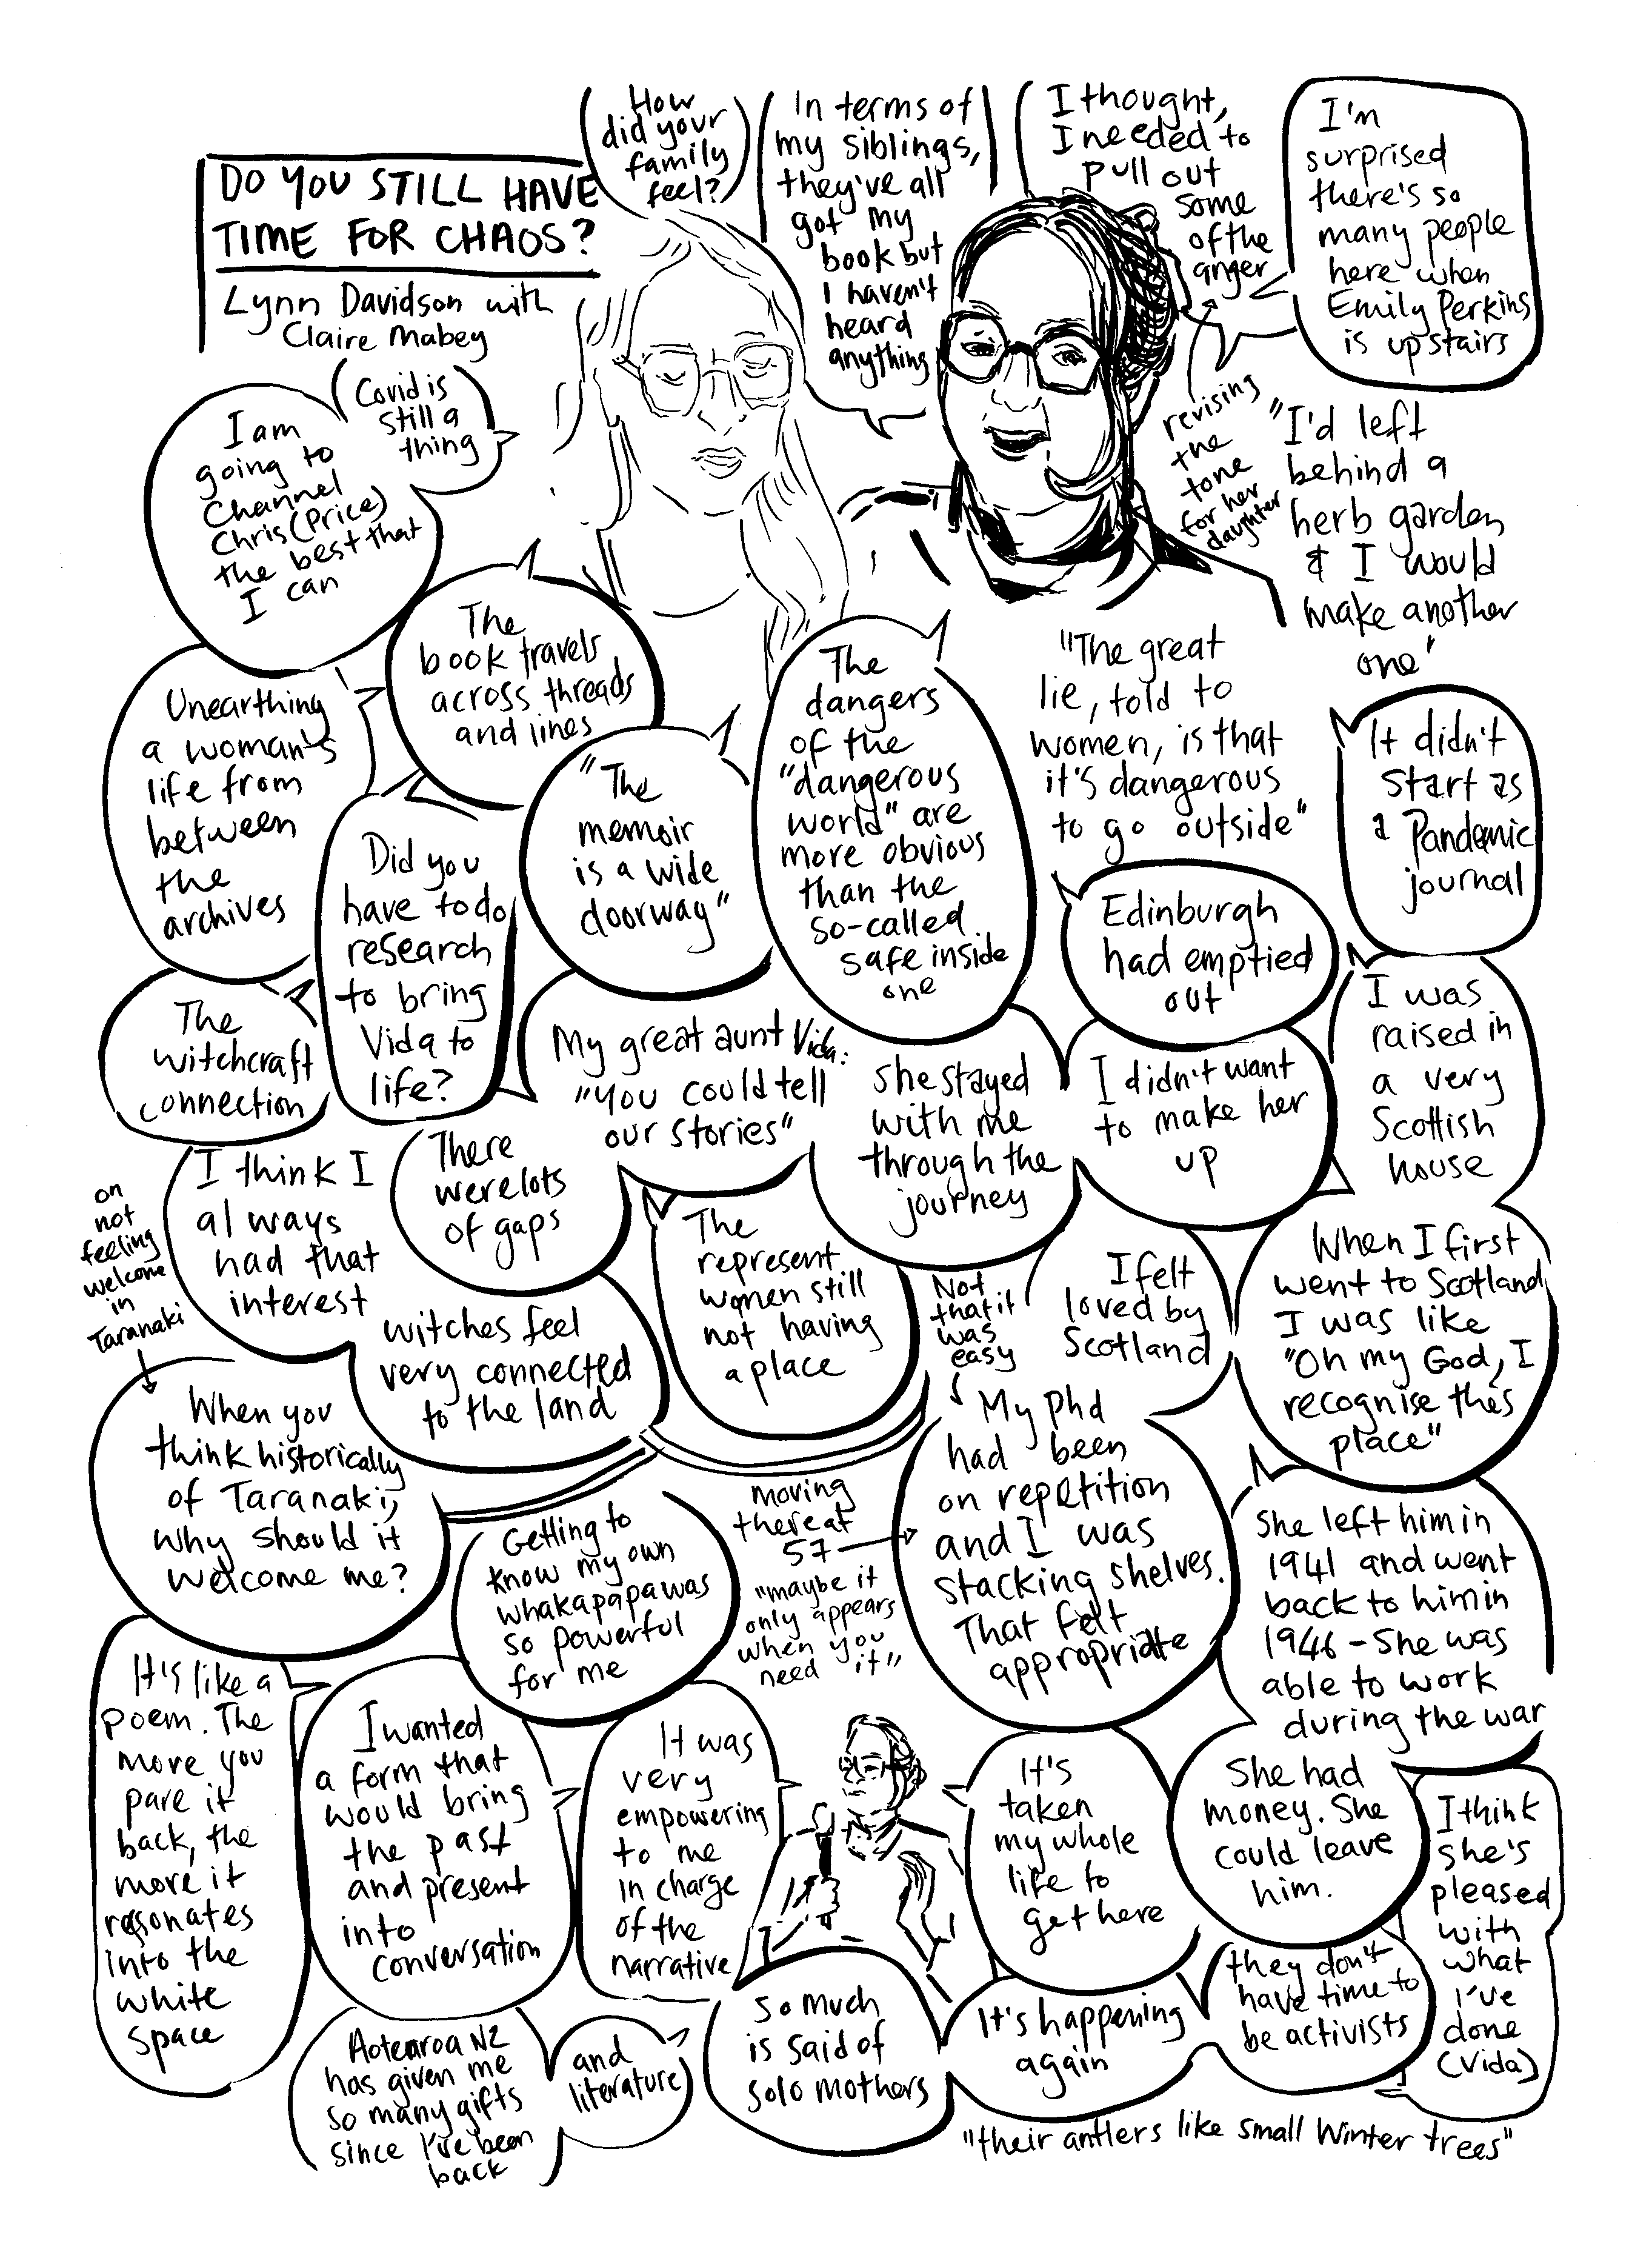 DO YOU STILL HAVE
TIME FOR CHAOS?
Lynn Davidson with
Claire Mabey
How
did your
family
feel?
In terms of
my siblings,
they've all
got my
book but
I haven't
heard
anything
I thought,
I needed to
pull out
some
of the
anger
I'm
surprised
there's so
many people
here when
Emily Perkins
is upstairs
revising
the
tone
for her
daughter
Covid is
still a
thing
I am
going to
Channel
Chris (Price)
the best that
I can
"I'd left
behind a
herb garden,
& I would
make another
one'
The
book travels
across threads
and lines
Unearthing
a woman's
life from
between
the
archives
"The
memoir
is a wide
doorway"
The
dangers
of the
"dangerous
world" are
more obvious
than the
so-called
safe inside
one
"The great
lie, told to
women, is that
it's dangerous
to go outside"
It didn't
start as
a Pandemic
journal
Did you
have to do
research
to bring
Vida to
life?
Edinburgh
had emptied
out
The
witchcraft
connection
My great aunt Vida:
"you could tell
our stories"
she stayed
with me
through the
journey
I didn't want
to make her
up
I was
raised in
a very
Scottish
house
on
not
feeling
welcome
in
Taranaki
I think I
always
had that
interest
There
were lots
of gaps
witches feel
very connected
to the land
The
represent
women still
not having
a place
Not
that it
was
easy
I felt
loved by
Scotland
When I first
went to Scotland
I was like
"Oh my God, I
recognise this
place"
When you
think historically
of Taranaki,
why should it
welcome me?
Getting to
know my own
whakapapa was
so powerful
for me
moving
there at
57
"maybe it
only appears
when you
need it"
My Phd
had been
on repetition
and I was
stacking shelves.
That felt
appropriate
She left him in
1941 and went
back to him in
1946 – She was
able to work
during the war
It's like a
poem. The
more you
pare it
back, the
more it
resonates
into the
white
space
I wanted
a form that
would bring
the past
and present
into
conversation
It was
very
empowering
to me
in charge
of the
narrative
It's
taken
my whole
life to
get here
She had
money. She
could leave
him.
I think
she's
pleased
with
what
I've
done
(Vida)
Aotearoa NZ
has given me
so many gifts
since I've been
back
and
literature
so much
is said of
solo mothers
It's happening
again
they don't
have time to
be activists
"their antlers like small winter trees"